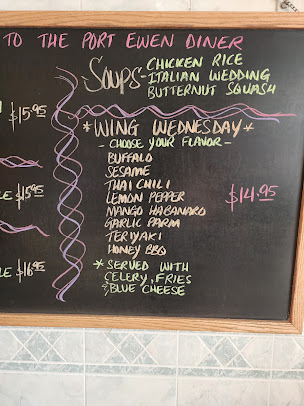 TO THE PORT EWEN DINER
Soups - CHICKEN RICE
ITALIAN WEDDING
BUTTERNUT SQUASH
$15.95
*WING WEDNESDAY*
- CHOOSE YOUR FLAVOR -
BUFFALO
SESAME
THAI CHILI
LEMON PEPPER
MANGO HABANARO
GARLIC PARM
TERIYAKI
HONEY BBQ
$14.95
LE $15.95
* SERVED WITH
CELERY, FRIES
& BLUE CHEESE
LE $16.95